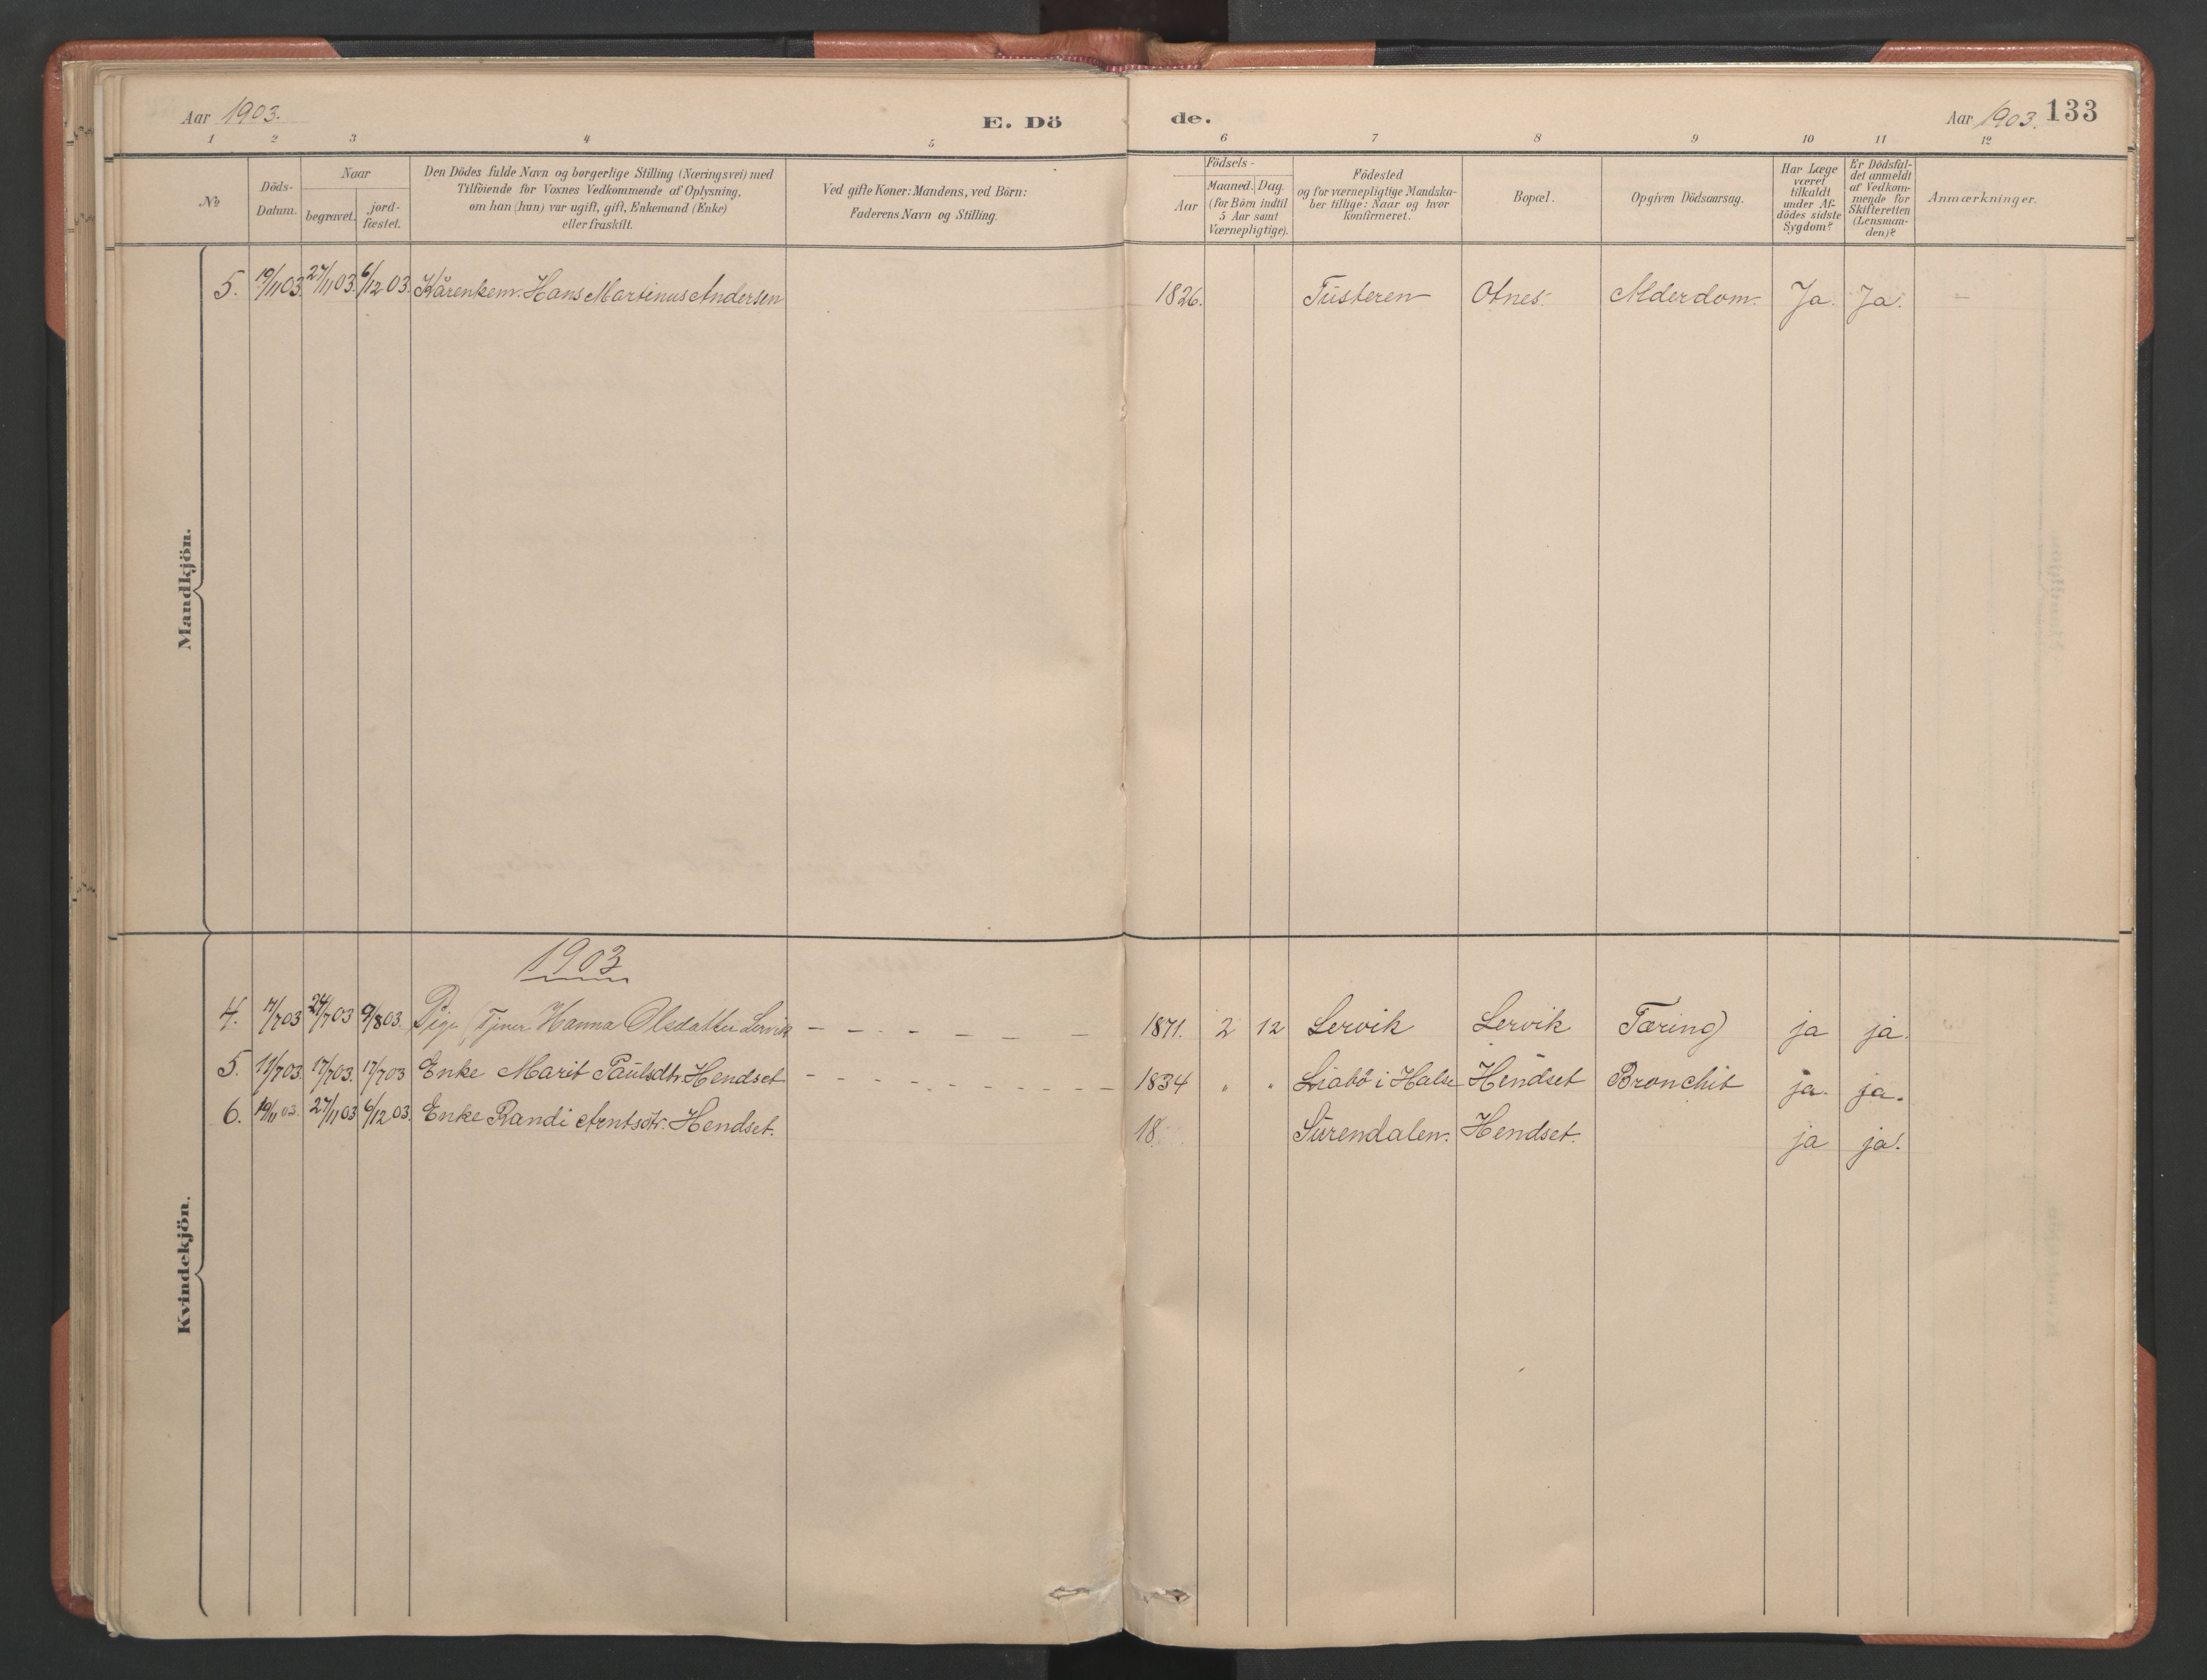 Aar 1903.
E. Dö
de.
Aar 1903. 133
1 2 3 4 5 6 7 8 9 10 11 12
№
Döds-
Datum.
Naar
begravet.
jord-
fæstet.
Den Dödes fulde Navn og borgerlige Stilling (Næringsvei) med
Tilföiende for Voxnes Vedkommende af Oplysning,
om han (hun) var ugift, gift, Enkemand (Enke)
eller fraskilt.
Ved gifte Koner: Mandens, ved Börn:
Faderens Navn og Stilling.
Födsels-
Aar
Maaned. Dag.
(for Börn indtil
5 Aar samt
Værnepligtige).
Födested
og for værnepligtige Mandska-
ber tillige: Naar og hvor
konfirmeret.
Bopæl.
Opgiven Dödsaarsag.
Har Læge
været
tilkaldt
under Af-
dödes sidste
Sygdom?
Er Dödsfal-
det anmeldt
af Vedkom-
mende for
Skifteretten
(Lensman-
den)?
Anmærkninger.
Mandkjön.
5. 19/11 03. 27/11 03. 6/12 03. Kårenkem. Hans Martinus Andersen 1826. Tusteren Otnes. Alderdom. Ja. Ja. -
1903
Kvindekjön.
4. 7/03 24/7 03 9/8 03. Pige (Tjener Hanna Olsdatter Lervik - - - - - - 1871. 2 12 Lervik Lervik Tæring) ja ja.
5. 11/7 03. 17/7 03. 17/7 03 Enke Marit Paulsdtr. Hendset - - - - - - 1834 " " Liabö i Halse Hendset Bronchit ja. ja.
6. 19/11 03. 27/11 03 6/12 03. Enke Randi Arntsdtr. Hendset. 18 Surendalen. Hendset. ja ja.